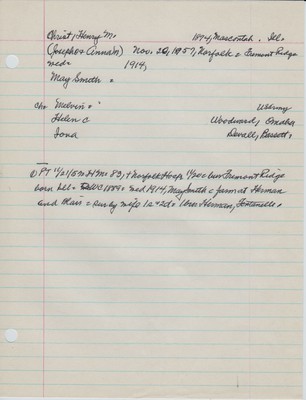 Christ, Henry M. 1874, Mascoutah, Ill.
(Joseph & Anna N) Nov. 20, 1957, Norfolk = Fremont Ridge
med = 1914,
May Smith =
Ch: Melvin = Wohning
Helen C Woodward, Omaha
Iona Bassett.
① PT 11/21/57 83, + Norfolk Hosp bur Fremont Ridge
born Ill = DWC 1884 = med 1914, May Smith = farm at Herman
and Blair = surv by wife 1s + 2d = 1 bro Herman, Fontanelle.